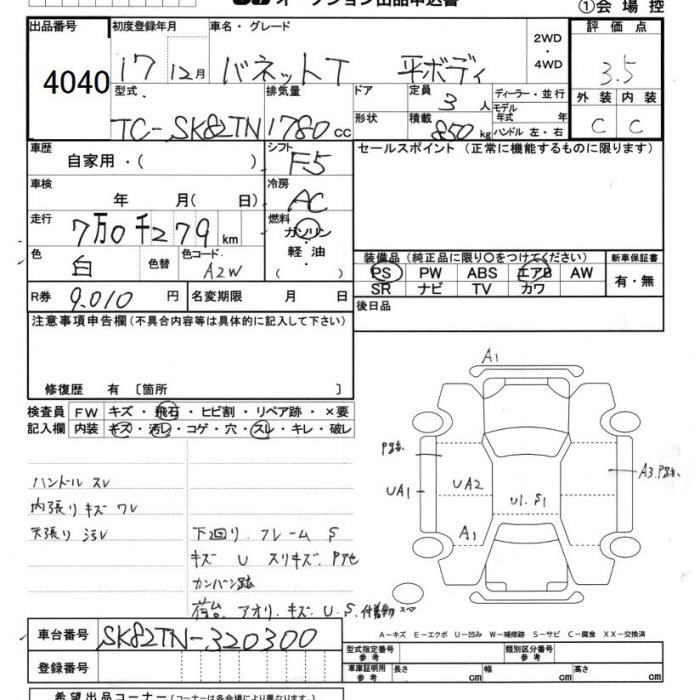 オークション出品申込書
①会場控
出品番号 初度登録年月 車名・グレード 2WD・4WD 評価点
4040 17 12月 バネットT 平ボディ 3.5
型式 排気量 ドア 定員 3人 ディーラー・並行 外装 内装
TC-SK82TN 1780cc 形状 積載 850kg モデル年式 年 ハンドル 左・右 C C
車歴 自家用・( ) シフト F5 セールスポイント (正常に機能するものに限ります)
車検 年 月( 日) 冷房 AC
走行 7万0千279km 燃料 ガソリン・軽油 ( )
色 白 色替 色コード A2W
装備品 (純正品に限り○をつけてください) 新車保証書
PS PW ABS エアB AW 有・無
SR ナビ TV カワ
R券 9,010円 名変期限 月 日 後日品
注意事項申告欄 (不具合内容等は具体的に記入して下さい)
修復歴 有 〔箇所 〕
検査員 FW キズ・飛石・ヒビ割・リペア跡・×要
記入欄 内装 キズ・汚レ・コゲ・穴・スレ・キレ・破レ
A1
P跡 A3.P跡
UA1 UA2 U1.S1
A1
ハンドル スレ
内張り キズ ワレ
天張り 汚レ
下回り.フレーム S
キズ U スリキズ.Pアセ
カンバン跡
荷台.アオリ.キズ.U.S.付着物 スペア
A-キズ E-エクボ U-凹み W-補修跡 S-サビ C-腐食 XX-交換済
車台番号 SK82TN-320300
登録番号
型式指定番号 参考 類別区分番号 参考
車庫証明用 参考 長さ cm 幅 cm 高さ cm
希望出品コーナー (コーナーは各会場により異なります)